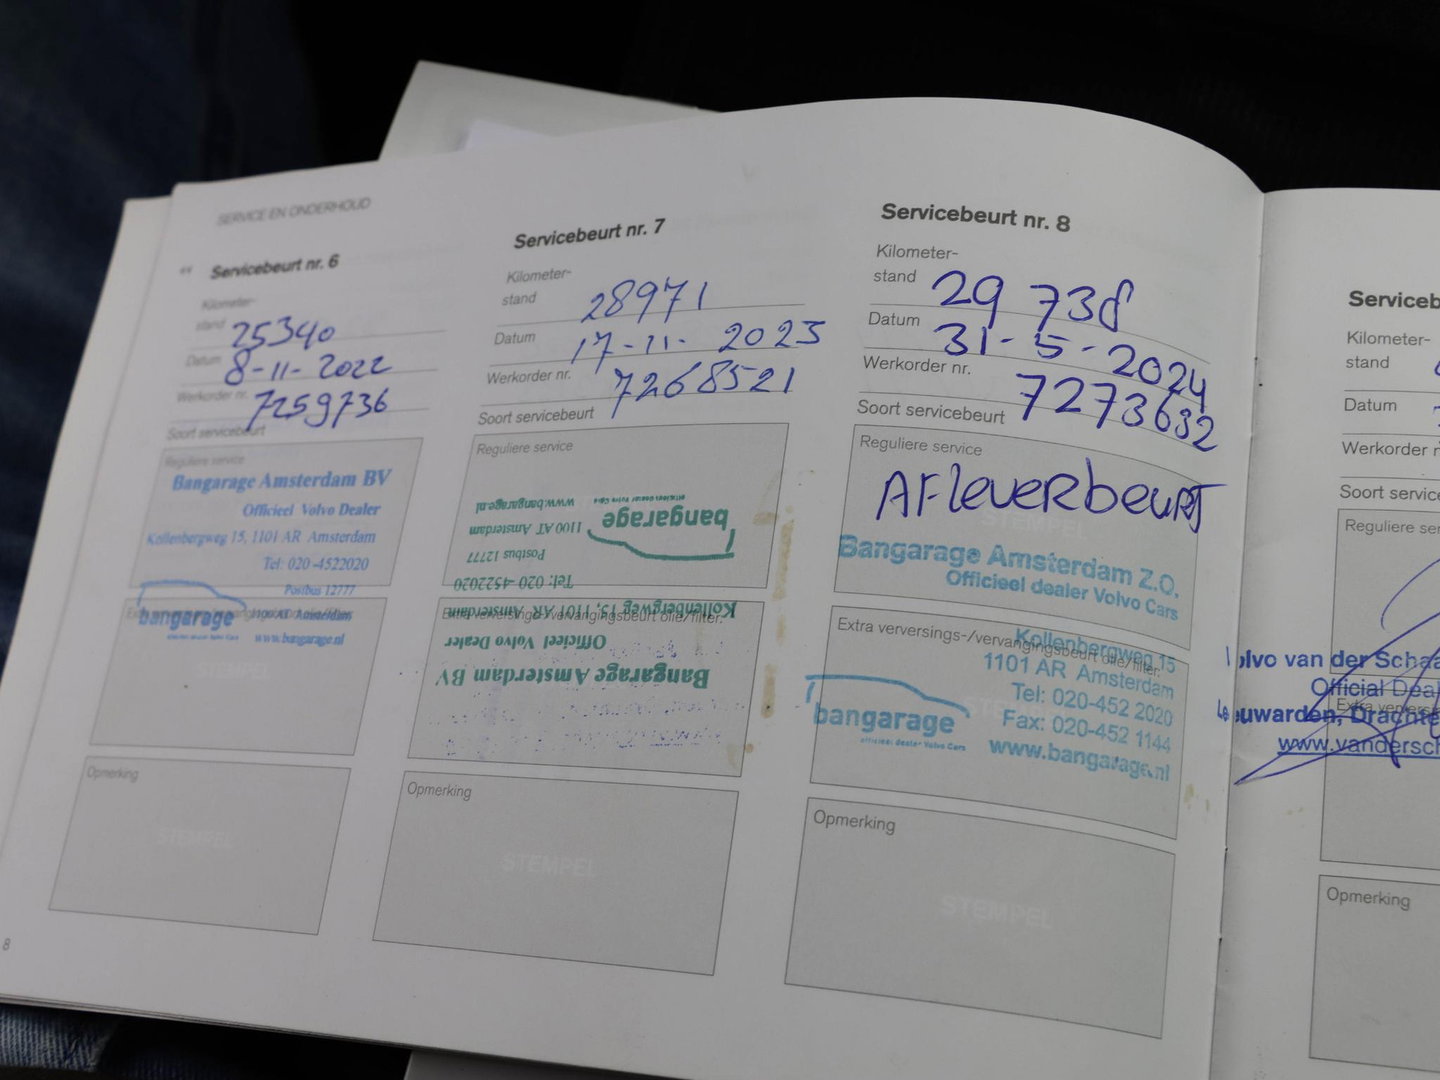 SERVICE EN ONDERHOUD
Servicebeurt nr. 6
Kilometer-
stand 25340
Datum 8-11-2022
Werkorder nr. 7259736
Soort servicebeurt
Reguliere service
Bangarage Amsterdam BV
Officieel Volvo Dealer
Kollenbergweg 15, 1101 AR Amsterdam
Tel: 020-4522020
Postbus 12777
1100 AT Amsterdam
bangarage
www.bangarage.nl
STEMPEL
Opmerking
STEMPEL
8
Servicebeurt nr. 7
Kilometer-
stand 28971
Datum 17-11-2023
Werkorder nr. 7268521
Soort servicebeurt
Reguliere service
Bangarage Amsterdam BV
Officieel Volvo Dealer
Kollenbergweg 15, 1101 AR Amsterdam
Tel: 020-4522020
Postbus 12777
1100 AT Amsterdam
www.bangarage.nl
bangarage
officieel dealer Volvo Cars
Extra verversings-/vervangingsbeurt olie/filter:
Opmerking
STEMPEL
Servicebeurt nr. 8
Kilometer-
stand 29 738
Datum 31-5-2024
Werkorder nr. 7273632
Soort servicebeurt
Reguliere service
AFleverbeurt
STEMPEL
Bangarage Amsterdam Z.O.
Officieel dealer Volvo Cars
Extra verversings-/vervangingsbeurt olie/filter:
Kollenbergweg 15
1101 AR Amsterdam
Tel: 020-452 2020
Fax: 020-452 1144
www.bangarage.nl
bangarage
officieel dealer Volvo Cars
Opmerking
STEMPEL
Serviceb
Kilometer-
stand
Datum
Werkorder n
Soort service
Reguliere ser
olvo van der Schaa
Official Deal
Extra ververs
euwarden, Drachte
www.vandersch
Opmerking